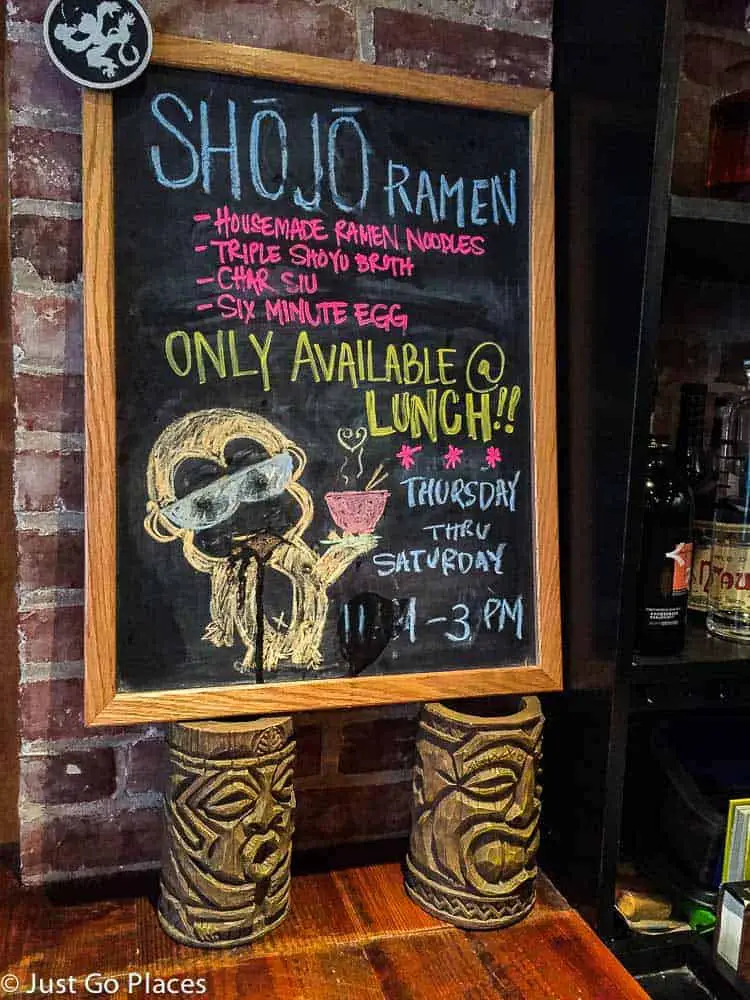 SHŌJŌ RAMEN
- HOUSEMADE RAMEN NOODLES
- TRIPLE SHOYU BROTH
- CHAR SIU
- SIX MINUTE EGG
ONLY AVAILABLE @
LUNCH!!
* * *
THURSDAY
THRU
SATURDAY
- 3 PM
© Just Go Places